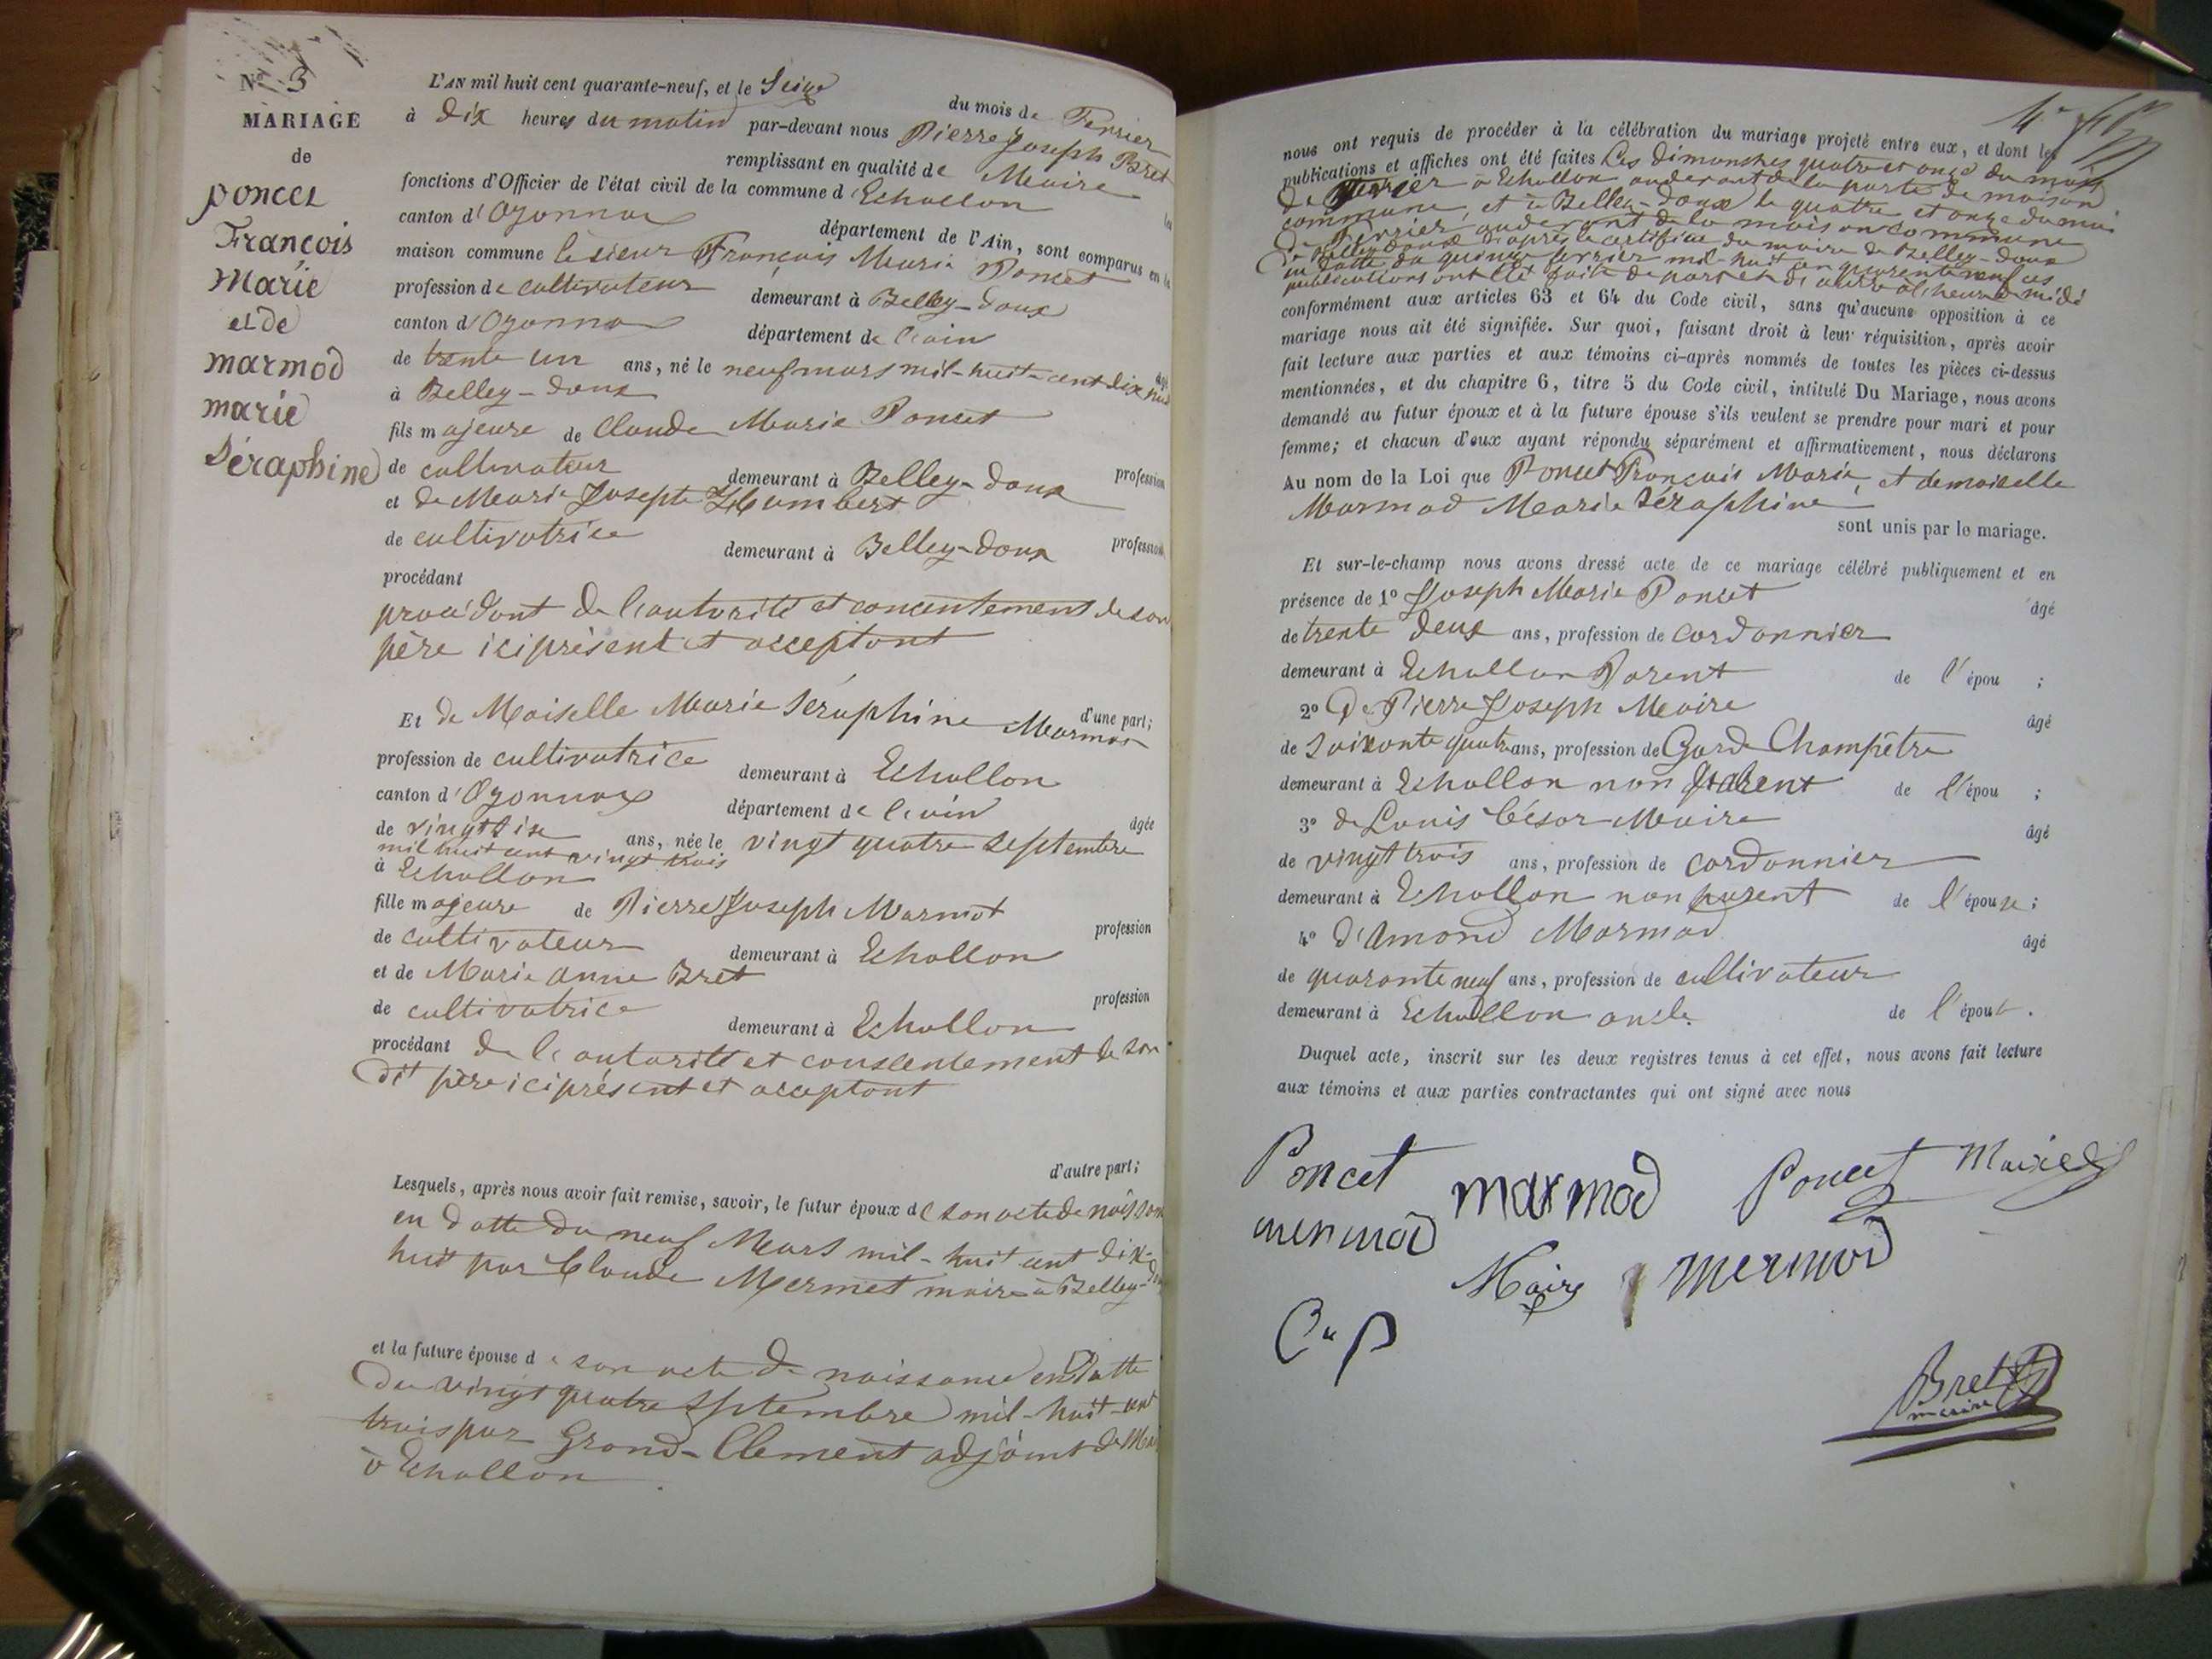 N° 3
MARIAGE
de
poncet
François
Marie
et de
marmod
marie
Séraphine
L'AN mil huit cent quarante-neuf, et le Seize du mois de Fevrier
à dix heures du matin par-devant nous Pierre Joseph Bret
remplissant en qualité de Maire les
fonctions d'Officier de l'état civil de la commune d'Echallon
canton d'Oyonnax département de l'Ain, sont comparus en la
maison commune le sieur François Marie Poncet
profession de cultivateur demeurant à Belley-doux
canton d'Oyonnax département de l'ain âgé
de trente un ans, né le neuf mars mil-huit-cent dix huit
à Belley-doux
fils majeure de Claude Marie Poncet profession
de cultivateur demeurant à Belley-doux
et de Marie Josephte Humbert profession
de cultivatrice demeurant à Belley-doux
procédant
procédant de l'autorité et concentement de son
père ici présent et acceptant
d'une part;
Et de Maiselle Marie Séraphine Marmod
profession de cultivatrice demeurant à Echallon
canton d'Oyonnax département de l'ain âgée
de vingt six ans, née le vingt quatre septembre
mil huit cent vingt trois
à Echallon
fille majeure de Pierre Joseph Marmot profession
de cultivateur demeurant à Echallon
et de Marie anne Bret profession
de cultivatrice demeurant à Echallon
procédant de l'autorité et consentement de son
dit père ici présent et acceptant
d'autre part;
Lesquels, après nous avoir fait remise, savoir, le futur époux de son acte de naissance
en datte du neuf Mars mil-huit cent dix-
huit par Claude Mermet maire à Belley-doux
et la future épouse de son acte de naissance en Datte
du vingt quatre Septembre mil-huit-cent
trois par Grand-Clement adjoint
à Echallon
nous ont requis de procéder à la célébration du mariage projeté entre eux, et dont les
publications et affiches ont été faites les dimanches quatre et onze du mois
de Fevrier à Echallon au devant de la porte de maison
commune, et à Belley-doux le quatre et onze du moi
de Fevrier au devant de la maison commune
de Belley-doux d'après le certificat du maire de Belley-doux
en datte du quinze fevrier mil-huit cen quarente neuf ces
publications ont été faite de part et d'autre a l'heure de midi
conformément aux articles 63 et 64 du Code civil, sans qu'aucune opposition à ce
mariage nous ait été signifiée. Sur quoi, faisant droit à leur réquisition, après avoir
fait lecture aux parties et aux témoins ci-après nommés de toutes les pièces ci-dessus
mentionnées, et du chapitre 6, titre 5 du Code civil, intitulé Du Mariage, nous avons
demandé au futur époux et à la future épouse s'ils veulent se prendre pour mari et pour
femme; et chacun d'eux ayant répondu séparément et affirmativement, nous déclarons
Au nom de la Loi que Poncet François Marie, et demoiselle
Marmod Marie Séraphine
sont unis par le mariage.
Et sur-le-champ nous avons dressé acte de ce mariage célébré publiquement et en
présence de 1° Joseph Marie Poncet âgé
de trente deux ans, profession de cordonnier
demeurant à Echallon Parent de l'épou ;
2° De Pierre Joseph Maire âgé
de soixante quatr ans, profession de Garde Champêtre
demeurant à Echallon non parent de l'épou ;
3° de Louis César Maire âgé
de vingt trois ans, profession de cordonnier
demeurant à Echallon non parent de l'épouse;
4° d'Amond Marmod âgé
de quarante neuf ans, profession de cultivateur
demeurant à Echallon oncle de l'épou .
Duquel acte, inscrit sur les deux registres tenus à cet effet, nous avons fait lecture
aux témoins et aux parties contractantes qui ont signé avec nous
Poncet marmod Poncet Maire
mermod
Maire mermod
Bret
maire